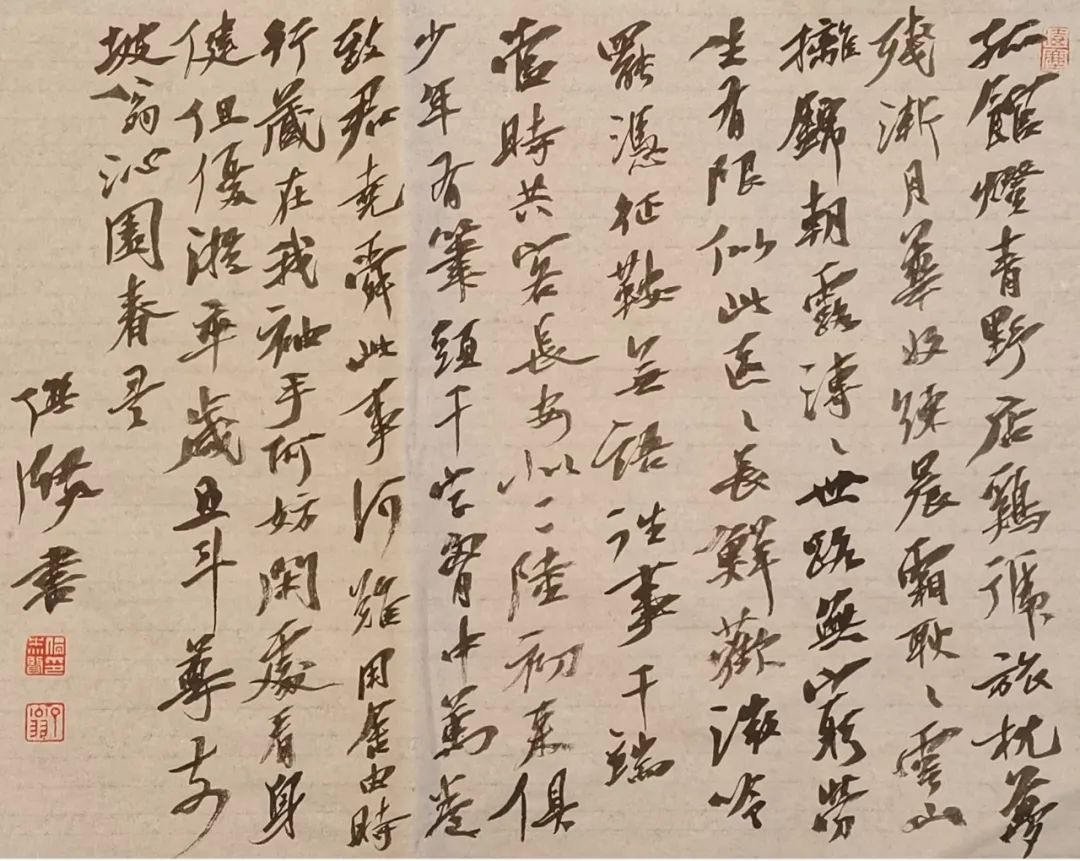 孤館燈青野店鷄號旅枕夢
殘漸月華收練晨霜耿〻雲山
摛錦朝露漙〻世路無窮勞
生有限似此區〻長鮮歡微吟
罷憑征鞍无語往事千端
當時共客長安似二陸初來俱
少年有筆頭千字胷中萬卷
致君堯舜此事何難用舍由時
行藏在我袖手何妨閑處看身
健但優游卒歲且斗尊前
坡翁沁園春
書